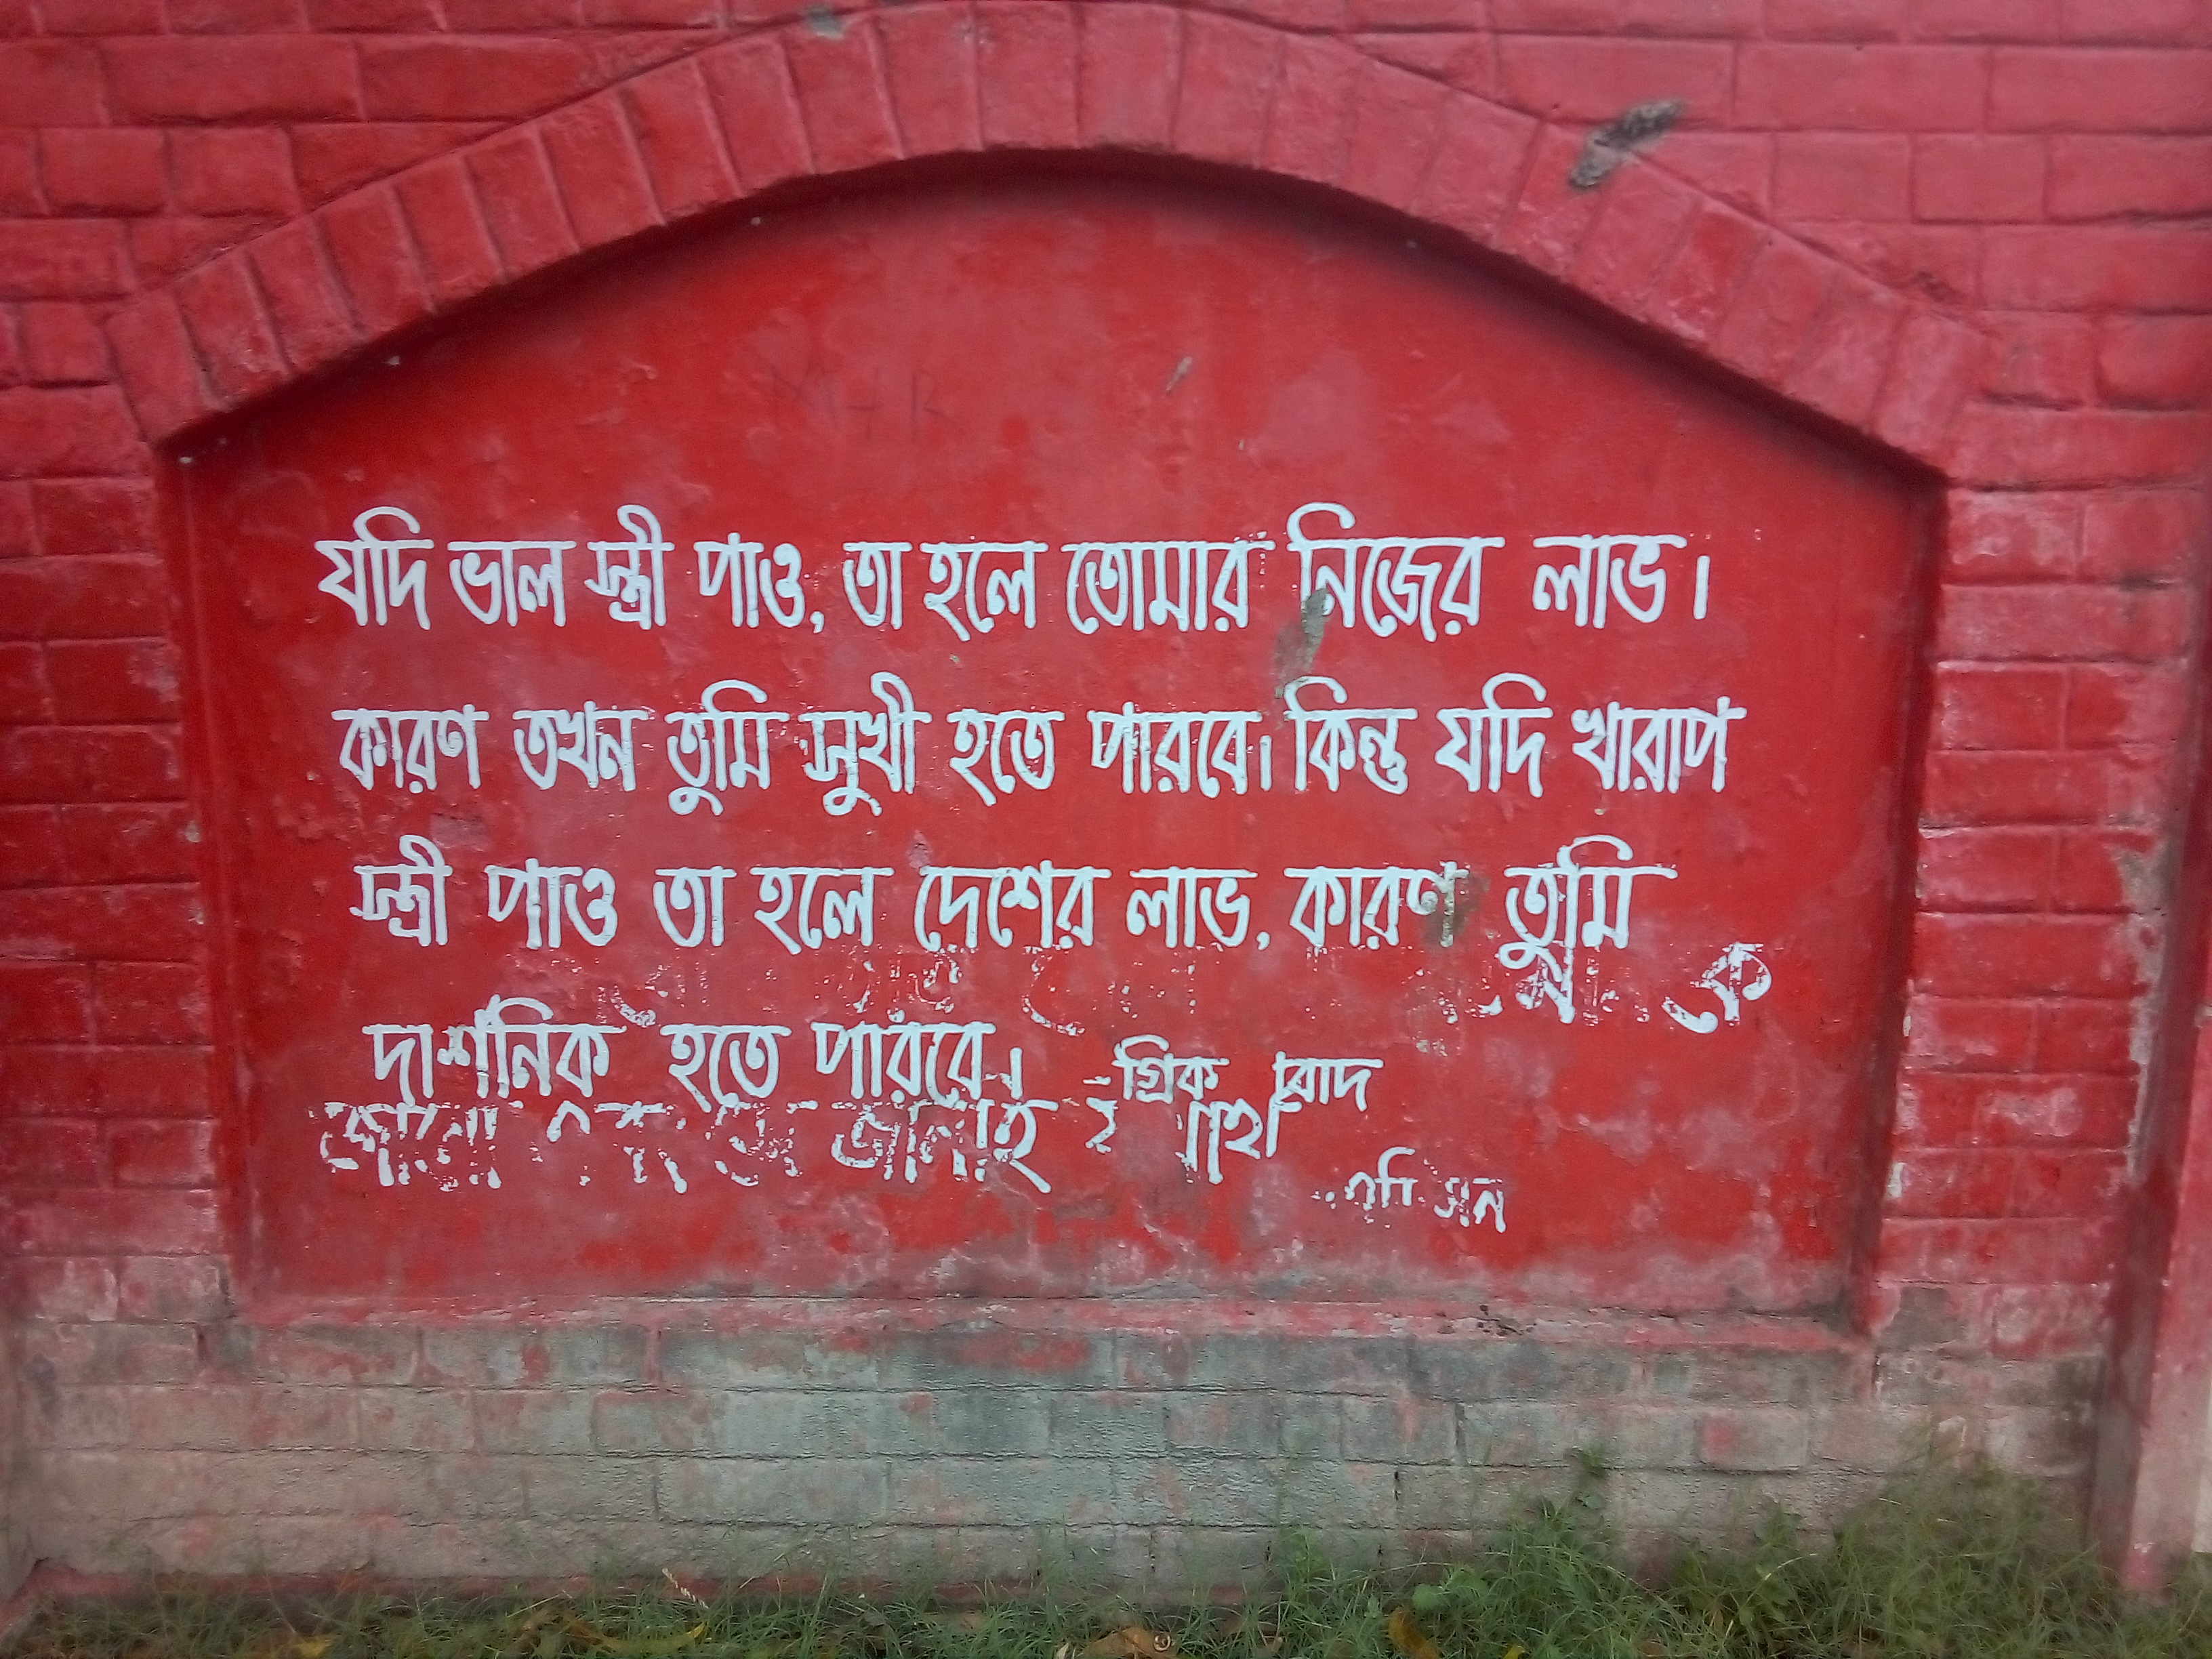 যদি ভাল স্ত্রী পাও, তা হলে তোমার নিজের লাভ।
কারণ তখন তুমি সুখী হতে পারবে। কিন্তু যদি খারাপ
স্ত্রী পাও তা হলে দেশের লাভ, কারণ তুমি
দার্শনিক হতে পারবে।
গ্রিক